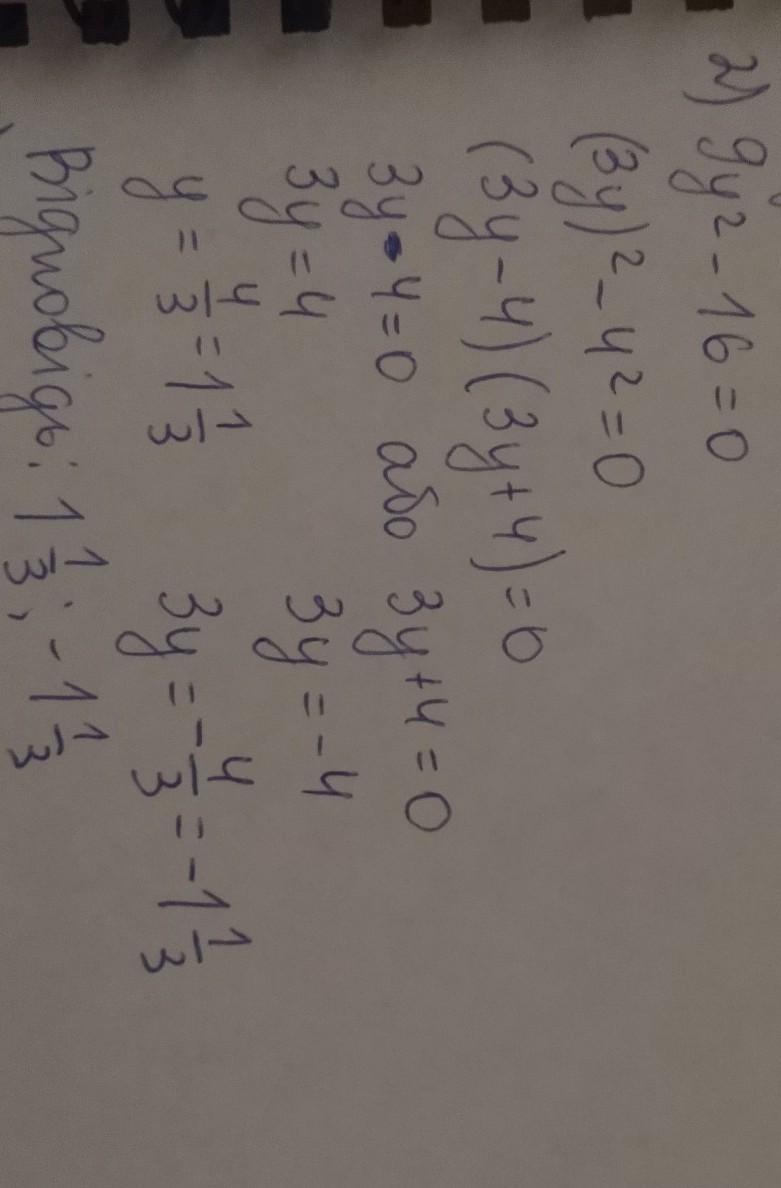 2) 9y² - 16 = 0
(3y)² - 4² = 0
(3y - 4)(3y + 4) = 0
3y - 4 = 0 або 3y + 4 = 0
3y = 4 3y = -4
y = 4/3 = 1 1/3 3y = -4/3 = -1 1/3
Відповідь: 1 1/3; -1 1/3